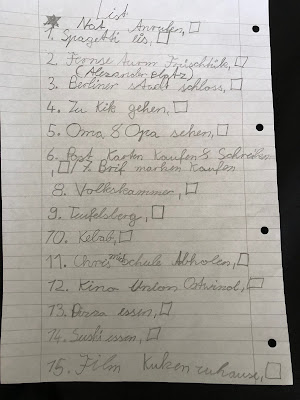 List
Nat Anrufen, 
1. Spagetti Eis,
2. Fernse turm Früchtük,
(Alexander platz)
3. Berliner stadt schloss,
4. Zu Kik gehen,
5. Oma & Opa sehen,
6. Post Karten Kaufen & Schreiben
, / 7. Brif marken kaufen
8. Volkskammer,
9. Teufelsberg,
10. Kebab,
11. Chris Schule Abholen,
12. Kino Union
13. Pizza essen,
14. Sushi essen,
15. Film Kuken zuhause,